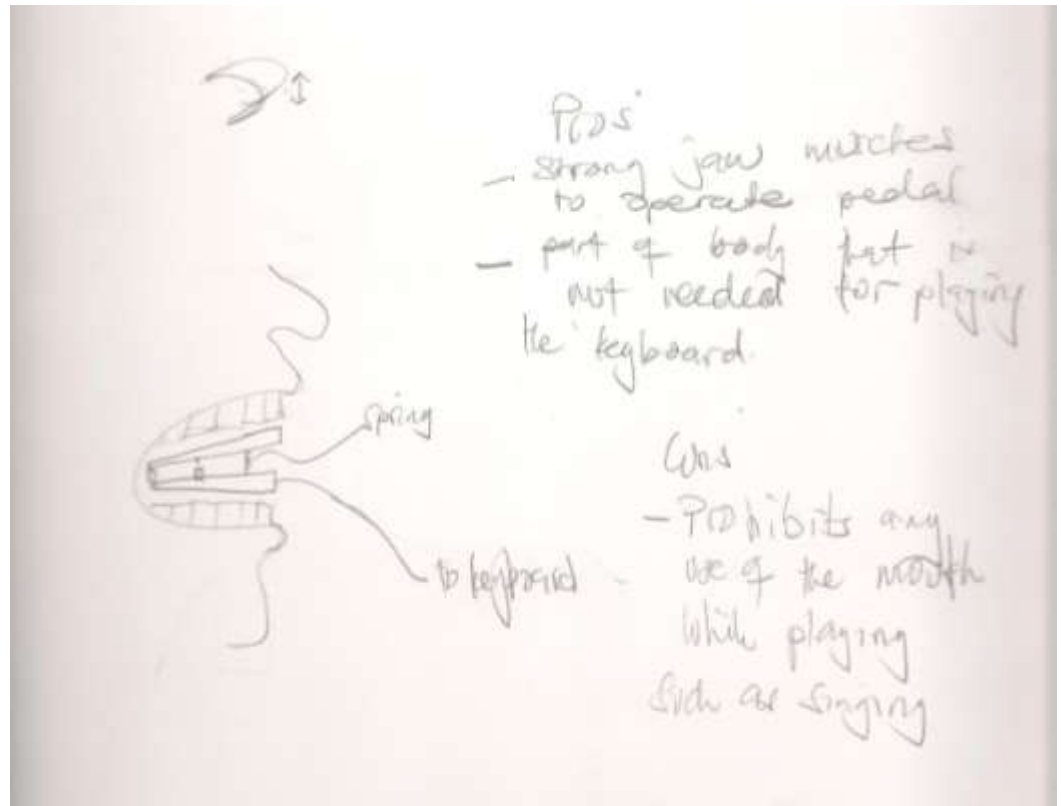 Pros
- strong jaw muscles
to operate pedal
- part of body that is
not needed for playing
the keyboard.
spring
to keyboard
Cons
- Prohibits any
use of the mouth
while playing
such as singing